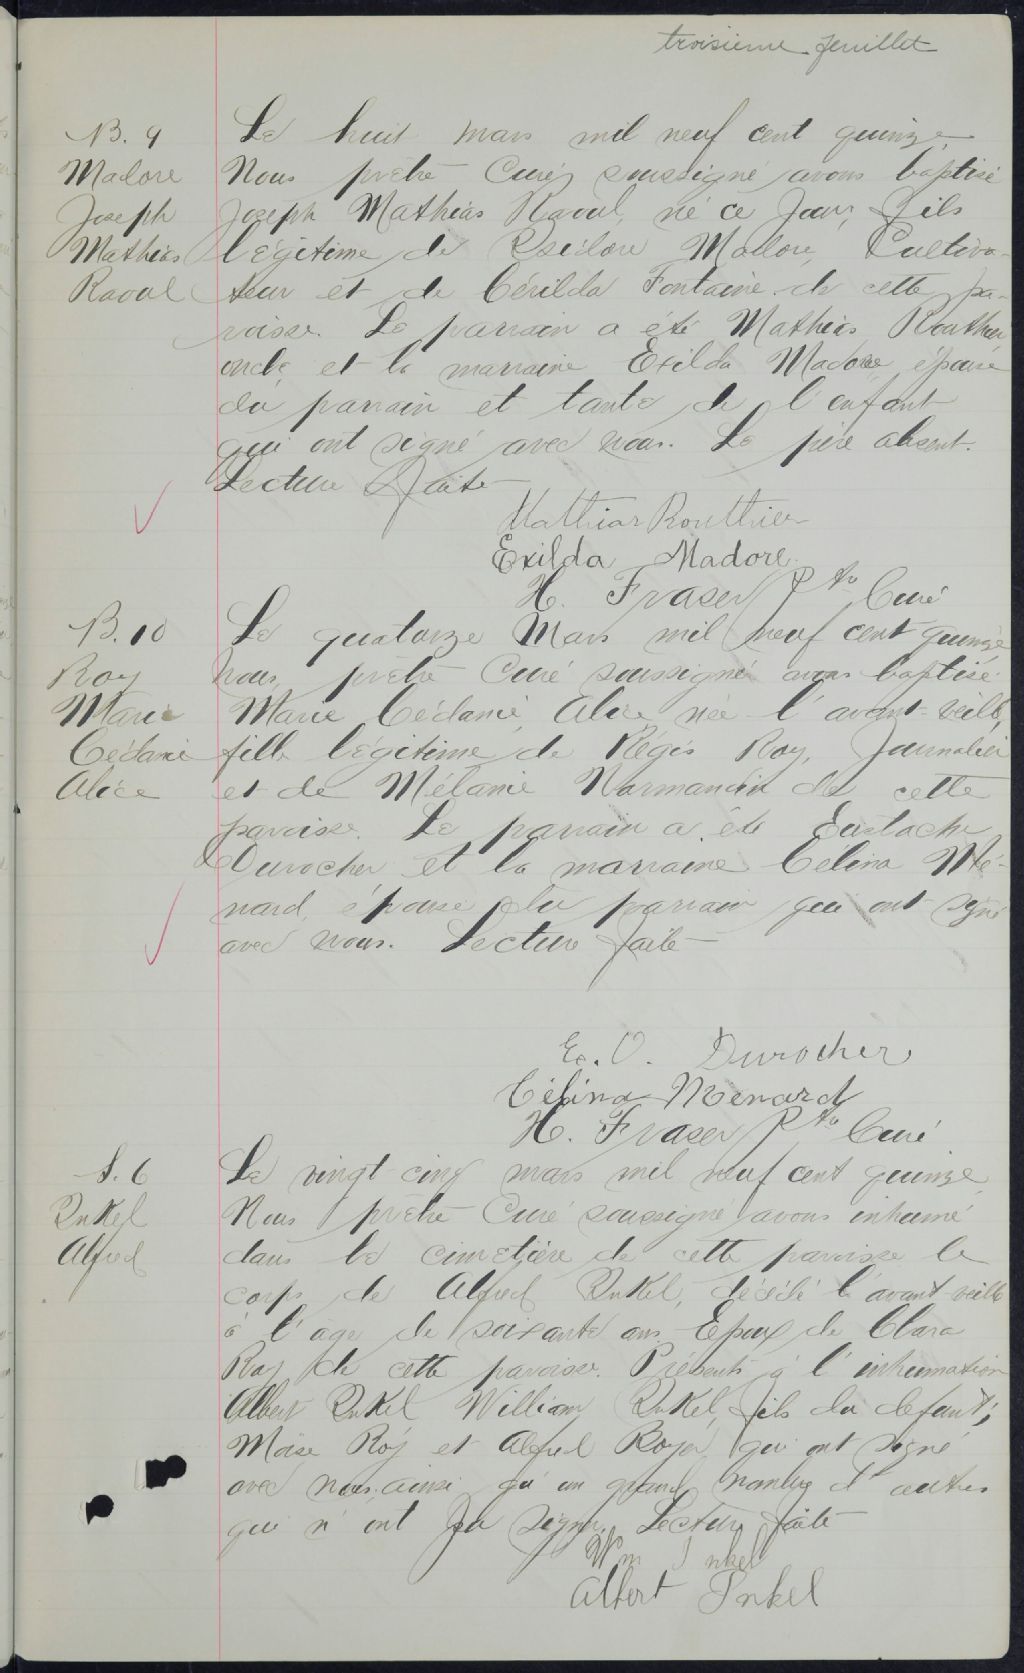 troisième feuillet
B. 9
Madore
Joseph
Mathias
Raoul
Le huit mars mil neuf cent quinze
Nous prêtre Curé soussigné avons baptisé
Joseph Mathias Raoul, né ce jour, fils
légitime de Isidore Madore, Cultiva-
teur et de Cérilda Fontaine de cette pa-
roisse. Le parrain a été Mathias Routhier
oncle et la marraine Exilda Madore, épouse
du parrain et tante de l'enfant
qui ont signé avec nous. Le père absent.
Lecture faite
Mathias Routhier
Exilda Madore
H. Fraser Ptre Curé
B. 10
Roy
Marie
Cédanie
Alice
Le quatorze Mars mil neuf cent quinze
nous, prêtre Curé soussigné avons baptisé
Marie Cédanie Alice née l'avant-veille,
fille légitime de Régis Roy, Journalier
et de Mélanie Normandin de cette
paroisse. Le parrain a été Eustache
Durocher et la marraine Célina Mé-
nard, épouse du parrain qui ont signé
avec nous. Lecture faite
E. O. Durocher
Célina Menard
H. Fraser Ptre Curé
S. 6
Inkel
Alfred
Le vingt cinq mars mil neuf cent quinze
Nous prêtre Curé soussigné avons inhumé
dans le cimetière de cette paroisse le
corps de Alfred Inkel, décédé l'avant-veille
à l'âge de soixante ans Epoux de Clara
Roy de cette paroisse. Présents à l'inhumation
Albert Inkel William Inkel, fils du defunt;
Moise Roy et Alfred Royer qui ont signé
avec nous, ainsi qu'un grand nombre d'autres
qui n'ont pu signer. Lecture faite
Wm Inkel
Albert Inkel